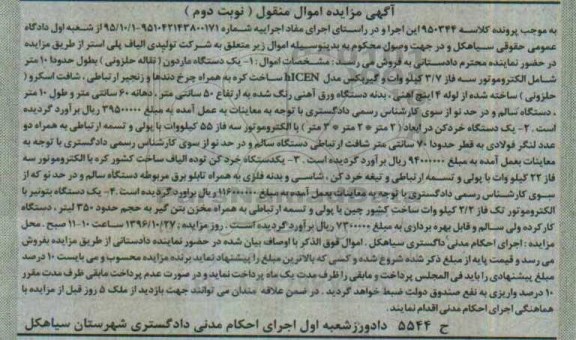 آگهی مزایده اموال منقول ( نوبت دوم )
به موجب پرونده کلاسه ۹۵۰۳۴۴ این اجرا و در راستای اجرای مفاد اجراییه شماره ۹۵۱۰۴۲۱۴۳۸۰۰۱۷۱-۹۵/۱۰/۱ از شعبه اول دادگاه
عمومی حقوقی سیاهکل و در جهت وصول محکوم به بدینوسیله اموال زیر متعلق به شرکت تولیدی الیاف پلی استر از طریق مزایده
در حضور نماینده محترم دادستانی به فروش می رسد : مشخصات اموال : ۱- یک دستگاه ماردون ( نقاله حلزونی ) بطول حدود ۱۰ متر
شامل الکتروموتور سه فاز ۳/۷ کیلو وات و گیربکس مدل hICEN ساخت کره به همراه چرخ دندها و زنجیر ارتباطی ، شافت اسکرو (
حلزونی ) ساخته شده از لوله ۴ اینچ آهنی ، بدنه دستگاه ورق آهنی رنگ شده به ارتفاع ۵۰ سانتی متر ، دهانه ۶۰ سانتی متر و طول ۱۰ متر
، دستگاه سالم و در حد نو از سوی کارشناس رسمی دادگستری با توجه به معاینات به عمل آمده به مبلغ ۳۹۵۰۰۰۰۰ ریال برآورد گردیده
است . ۲- یک دستگاه خردکن در ابعاد ( ۲ متر * ۲ متر * ۳ متر ) با الکتروموتور سه فاز ۵۵ کیلووات با پولی و تسمه ارتباطی به همراه دو
عدد لنگر فولادی به قطر حدودا ۷۰ سانتی متر شافت ارتباطی دستگاه سالم و در حد نو از سوی کارشناس رسمی دادگستری با توجه به
معاینات بعمل آمده به مبلغ ۹۴۰۰۰۰۰۰ ریال برآورد گردیده است . ۳- یکدستگاه خرد کن توده الیاف ساخت کشور کره با الکتروموتور سه
فاز ۲۲ کیلو وات با پولی و تسمه ارتباطی و تیغه خرد کن ، شاسی و بدنه فلزی به همراه تابلو برق مربوطه دستگاه سالم و در حد نو که از
سوی کارشناس رسمی دادگستری با توجه به معاینات بعمل آمده به مبلغ ۱۱۶۰۰۰۰۰۰ ریال برآورد گردیده است . ۴- یک دستگاه بتونیر با
الکتروموتور تک فاز ۲/۲ کیلو وات ساخت کشور چین با پولی و تسمه ارتباطی به همراه مخزن بتن گیر به حجم حدود ۳۵۰ لیتر ، دستگاه
کارکرده ولی سالم و قابل بهره برداری به مبلغ ۷۳۰۰۰۰۰ ریال برآورد گردیده است . روز مزایده : ۱۳۹۶/۱۰/۲۷ ساعت ۱۰-۱۱ صبح . محل
مزایده : اجرای احکام مدنی دادگستری سیاهکل . اموال فوق الذکر با اوصاف بیان شده در حضور نماینده دادستانی از طریق مزایده بفروش
می رسد و قیمت پایه از مبلغ ذکر شده شروع شده و کسی که بالاترین مبلغ را پیشنهاد نماید برنده مزایده محسوب و می بایست ۱۰ درصد
مبلغ پیشنهادی را باید فی المجلس پرداخت و مابقی را ظرف مدت یک ماه پرداخت نماید و در صورت عدم پرداخت مابقی ظرف مدت مقرر
۱۰ درصد واریزی به نفع صندوق دولت ضبط خواهد گردید . در ضمن علاقه مندان می توانند جهت بازدید از ملک ۵ روز قبل از مزایده با
هماهنگی اجرای احکام مدنی اقدام نمایند .
ح ۵۵۴۴ دادورز شعبه اول اجرای احکام مدنی دادگستری شهرستان سیاهکل